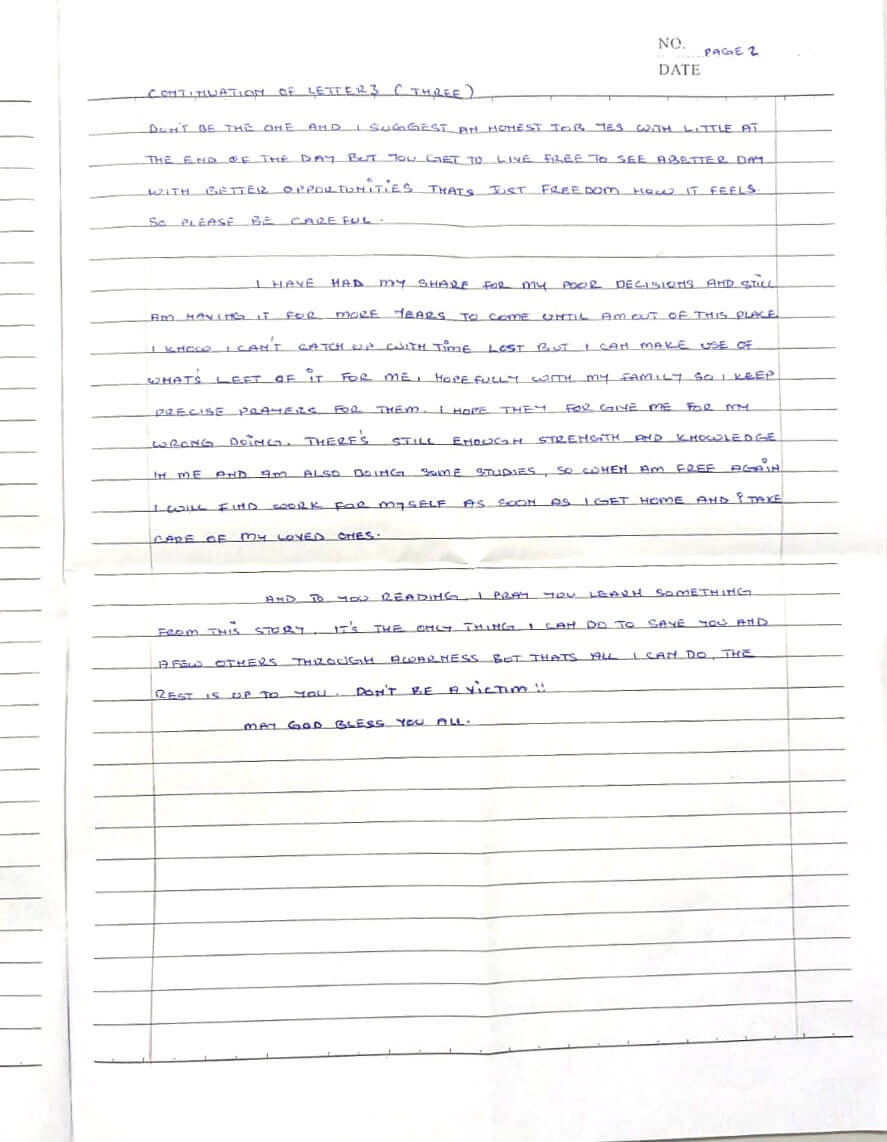 NO. PAGE 2
DATE
CONTINUATION OF LETTER 3 (THREE)
DON'T BE THE ONE AND I SUGGEST AN HONEST JOB YES WITH LITTLE AT
THE END OF THE DAY BUT YOU GET TO LIVE FREE TO SEE A BETTER DAY
WITH BETTER OPPORTUNITIES THATS JUST FREEDOM HOW IT FEELS.
SO PLEASE BE CAREFUL.
I HAVE HAD MY SHARE FOR MY POOR DECISIONS AND STILL
AM HAVING IT FOR MORE YEARS TO COME UNTIL AM OUT OF THIS PLACE
I KNOW I CAN'T CATCH UP WITH TIME LOST BUT I CAN MAKE USE OF
WHAT'S LEFT OF IT FOR ME, HOPEFULLY WITH MY FAMILY SO I KEEP
PRECISE PRAYERS FOR THEM. I HOPE THEY FORGIVE ME FOR MY
WRONG DOING. THERE'S STILL ENOUGH STRENGTH AND KNOWLEDGE
IN ME AND AM ALSO DOING SOME STUDIES, SO WHEN AM FREE AGAIN
I WILL FIND WORK FOR MYSELF AS SOON AS I GET HOME AND TAKE
CARE OF MY LOVED ONES.
AND TO YOU READING, I PRAY YOU LEARN SOMETHING
FROM THIS STORY. IT'S THE ONLY THING I CAN DO TO SAVE YOU AND
A FEW OTHERS THROUGH AWARNESS BUT THATS ALL I CAN DO, THE
REST IS UP TO YOU. DON'T BE A VICTIM!!
MAY GOD BLESS YOU ALL.